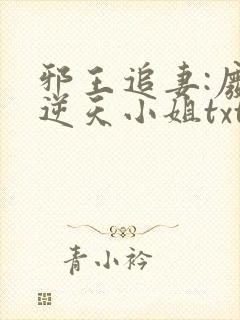 邪王追妻:废
逆天小姐txt
青小衿